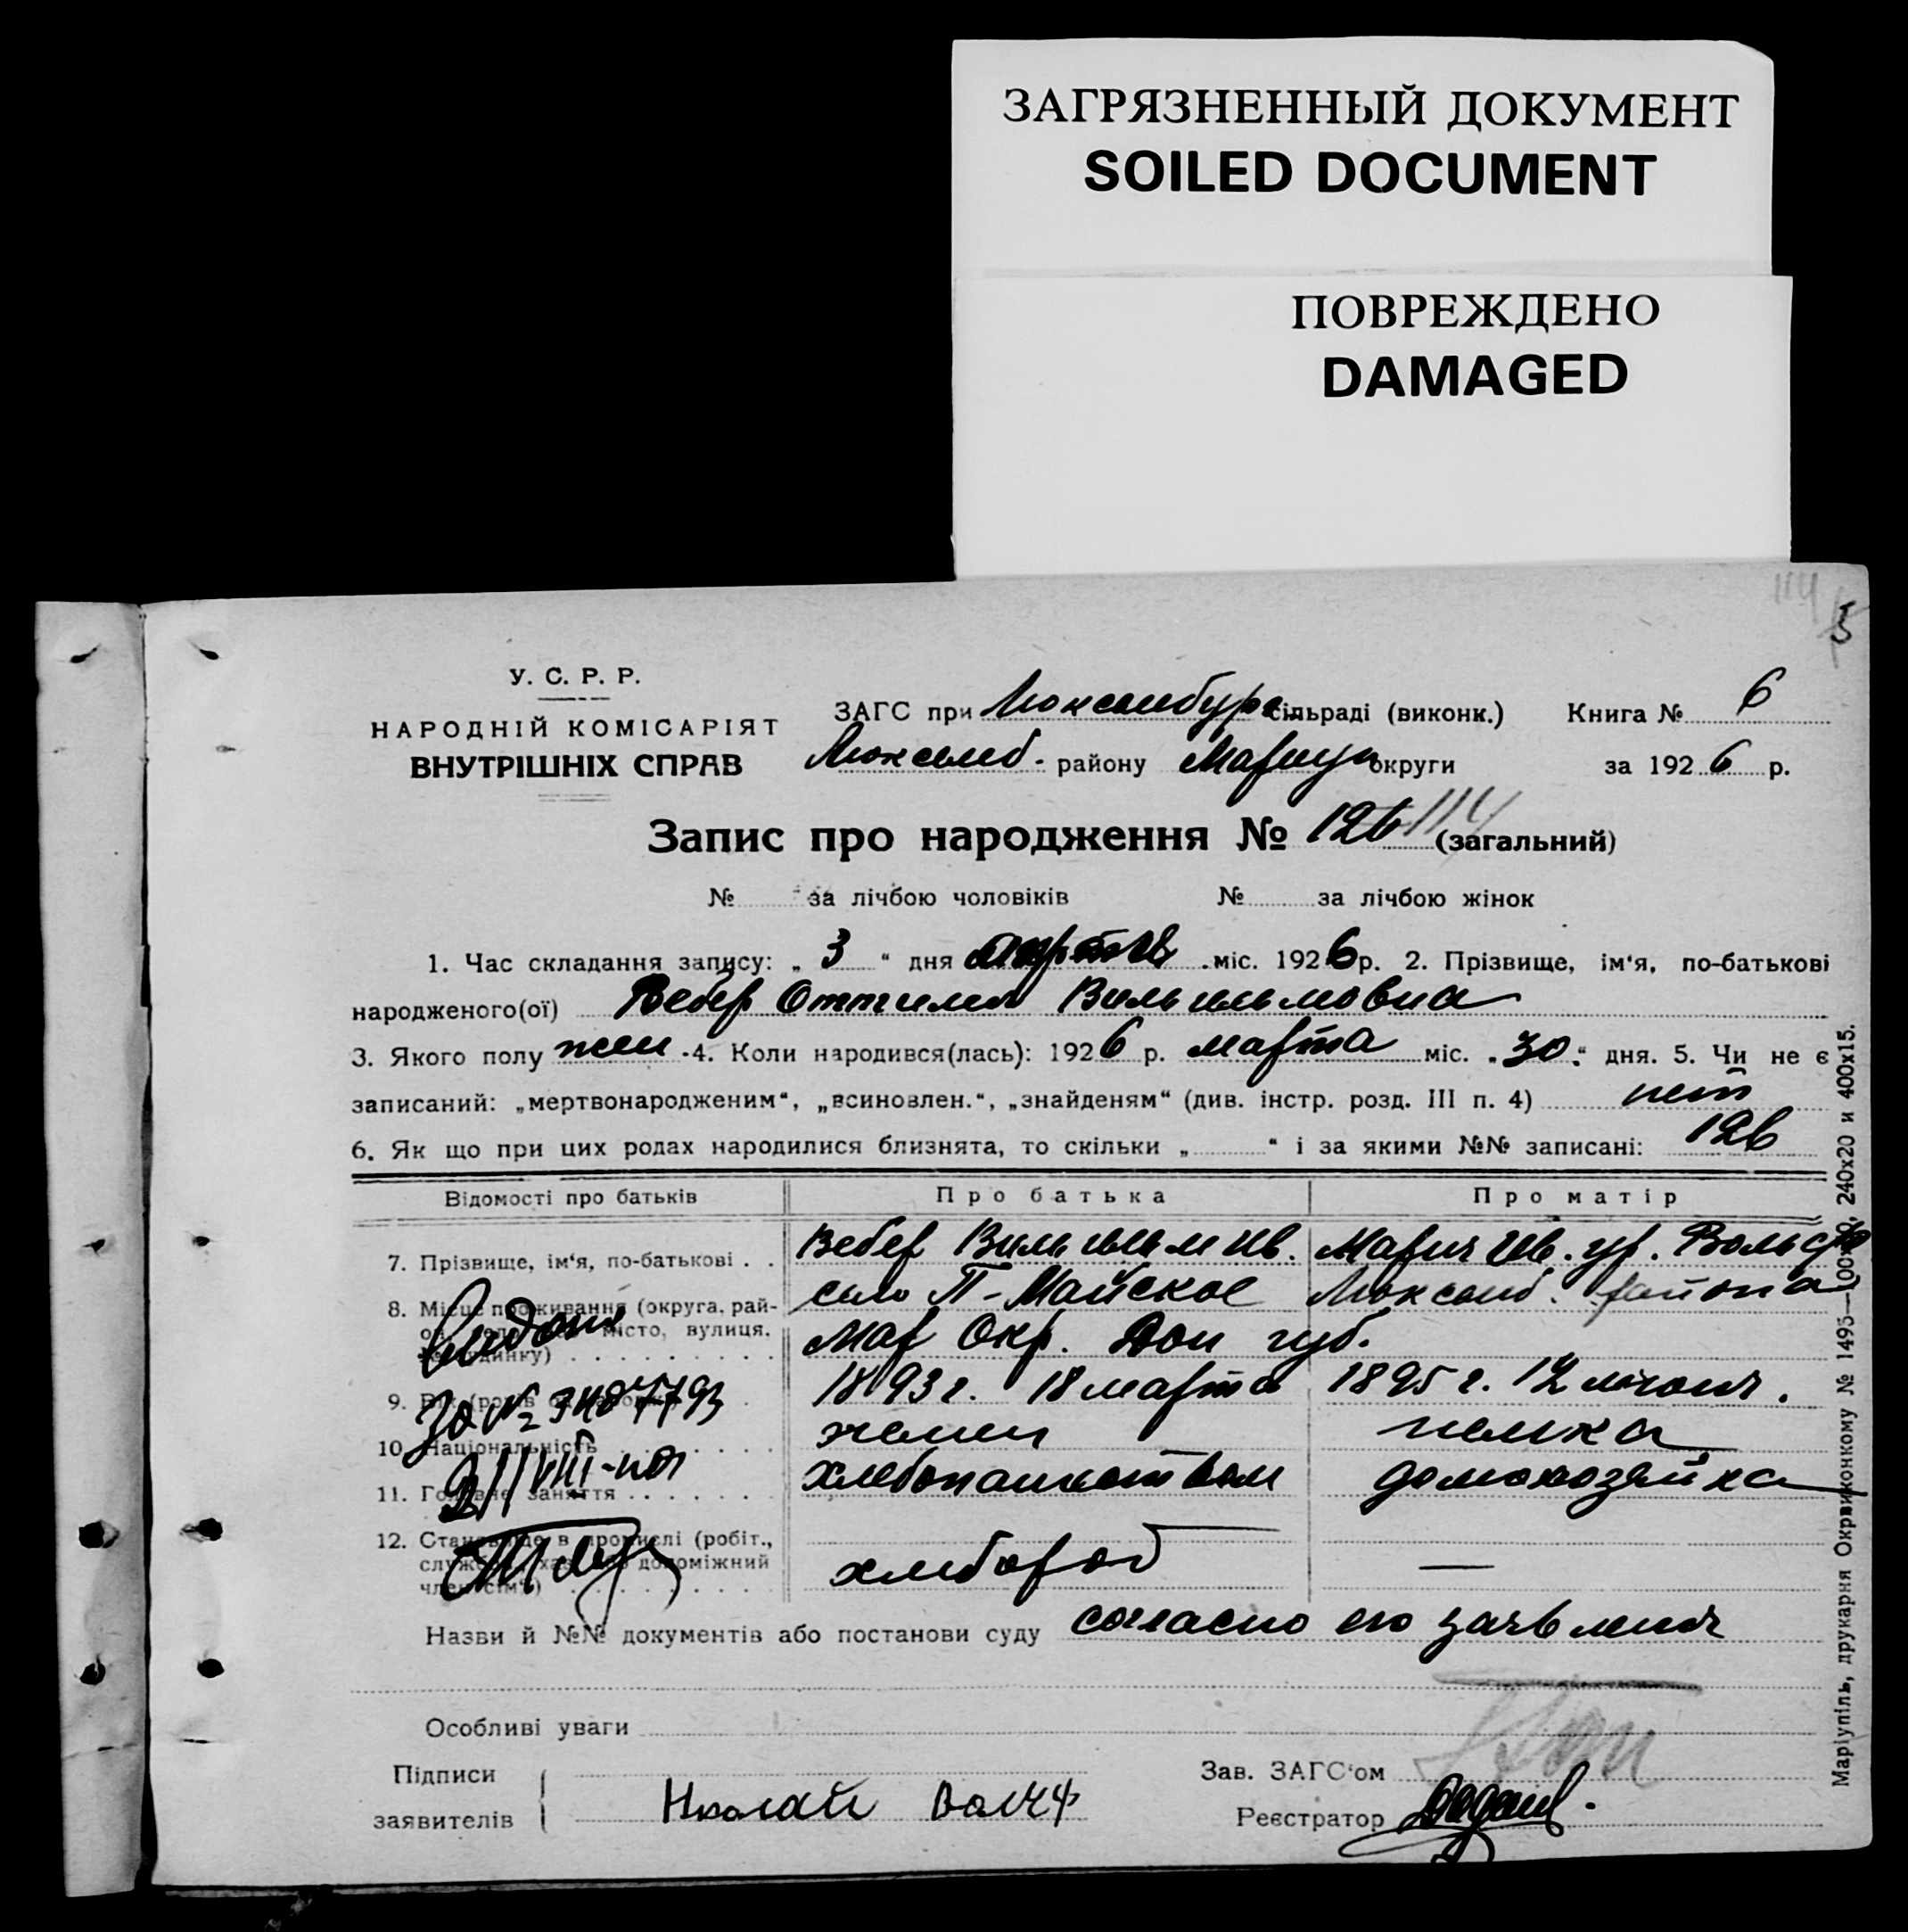 ЗАГРЯЗНЕННЫЙ ДОКУМЕНТ
SOILED DOCUMENT
ПОВРЕЖДЕНО
DAMAGED
114
5
У. С. Р. Р.
НАРОДНІЙ КОМІСАРІЯТ
ВНУТРІШНІХ СПРАВ
ЗАГС при Люксембург. сільраді (виконк.) Книга № 6
Люксемб. району Мариуп округи за 1926 р.
Запис про народження № 126 114 (загальний)
№ за лічбою чоловіків № за лічбою жінок
1. Час складання запису: „ 3 “ дня міс. 1926 р. 2. Прізвище, ім‘я, по-батькові
народженого(ої) Вебер Оттилия Вильгельмовна
3. Якого полу жен. 4. Коли народився(лась): 1926 р. марта міс. „30.“ дня. 5. Чи не є
записаний: „мертвонародженим“, „всиновлен.“, „знайденям“ (див. інстр. розд. III п. 4) нет
6. Як що при цих родах народилися близнята, то скільки „ “ і за якими №№ записані: 126
Відомості про батьків Про батька Про матір
7. Прізвище, ім‘я, по-батькові . . Вебер Вильгельм Ив. Мария Ив. ур. Вольф
8. Місце проживання (округа, рай- село П-Майское Люксемб. района
он, село, місто, вулиця, Мар Окр. Дон губ.
будинку)
9. Вік 1893 г. 18 марта 1895 г. 12 июня.
10. Національність немец немка
11. Головне заняття хлебопашеством домохозяйка
12. Становище в промислі (робіт.,
служ. хаз. допоміжний хлебороб —
член сім‘ї)
Назви й №№ документів або постанови суду согласно его заявления
Особливі уваги
Підписи
заявителів Николай Вольф
Зав. ЗАГС‘ом
Реєстратор
Маріупіль, друкарня Окрвиконкому № 1495— 240х20 и 400х15.